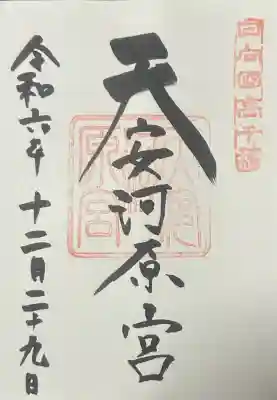 日向國高千穂
天安河原宮
令和六年十二月二十九日